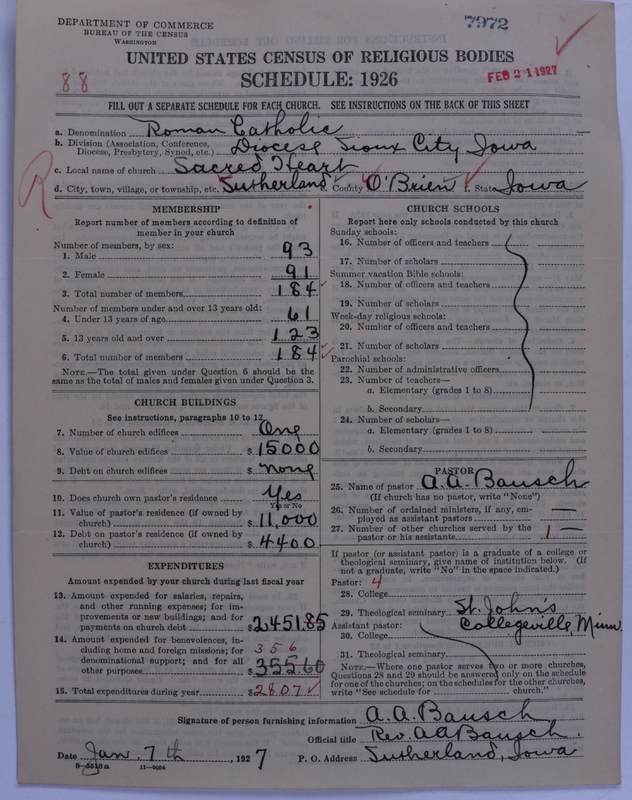 DEPARTMENT OF COMMERCE
BUREAU OF THE CENSUS
WASHINGTON
7972
UNITED STATES CENSUS OF RELIGIOUS BODIES
SCHEDULE: 1926
FEB 21 1927
88
FILL OUT A SEPARATE SCHEDULE FOR EACH CHURCH. SEE INSTRUCTIONS ON THE BACK OF THIS SHEET
a. Denomination Roman Catholic
b. Division (Association, Conference, Diocese, Presbytery, Synod, etc.) Diocese Sioux City Iowa
c. Local name of church Sacred Heart
d. City, town, village, or township, etc. Sutherland County O'Brien f. State Iowa
R
MEMBERSHIP
Report number of members according to definition of
member in your church
Number of members, by sex:
1. Male 93
2. Female 91
3. Total number of members 184
Number of members under and over 13 years old:
4. Under 13 years of age 61
5. 13 years old and over 123
6. Total number of members 184
NOTE.—The total given under Question 6 should be
same as the total of males and females given under Question 3.
CHURCH BUILDINGS
See instructions, paragraphs 10 to 12
7. Number of church edifices One
8. Value of church edifices $ 15000
9. Debt on church edifices $ none
10. Does church own pastor's residence Yes
Yes or No
11. Value of pastor's residence (if owned by
church) $ 11,000
12. Debt on pastor's residence (if owned by
church) $ 4400
EXPENDITURES
Amount expended by your church during last fiscal year
13. Amount expended for salaries, repairs,
and other running expenses; for im-
provements or new buildings; and for
payments on church debt $ 2451.85
14. Amount expended for benevolences, in-
cluding home and foreign missions; for 356
denominational support; and for all
other purposes $ 355.60
15. Total expenditures during year $ 2807
CHURCH SCHOOLS
Report here only schools conducted by this church
Sunday schools:
16. Number of officers and teachers
17. Number of scholars
Summer vacation Bible schools:
18. Number of officers and teachers
19. Number of scholars
Week-day religious schools:
20. Number of officers and teachers
21. Number of scholars
Parochial schools:
22. Number of administrative officers
23. Number of teachers—
a. Elementary (grades 1 to 8)
b. Secondary
24. Number of scholars—
a. Elementary (grades 1 to 8)
b. Secondary
PASTOR
25. Name of pastor A.A. Bausch
(If church has no pastor, write "None")
26. Number of ordained ministers, if any, em-
ployed as assistant pastors —
27. Number of other churches served by the
pastor or his assistants 1 —
If pastor (or assistant pastor) is a graduate of a college or
theological seminary, give name of institution below. (If
not a graduate, write "No" in the space indicated.)
Pastor: 4
28. College
29. Theological seminary St. John's
Assistant pastor: Collegeville, Minn.
30. College
31. Theological seminary
NOTE.—Where one pastor serves two or more churches,
Questions 28 and 29 should be answered only on the schedule
for one of the churches; on the schedules for the other churches,
write "See schedule for church."
Signature of person furnishing information A.A. Bausch
Official title Rev. A A Bausch.
Date Jan. 7th, 1927 P. O. Address Sutherland, Iowa
11—9024